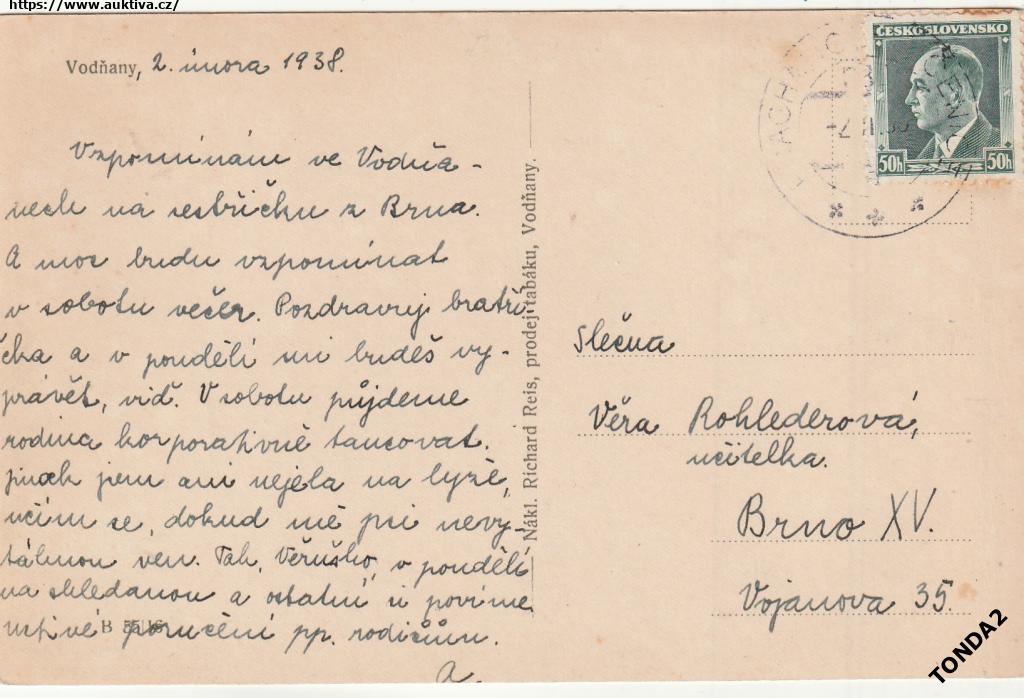 https://www.auktiva.cz/
Vodňany, 2. února 1938.
Vzpomínám ve Vodňa-
nech na sestřičku z Brna.
A moc budu vzpomínat
v sobotu večer. Pozdravuj bratří
čka a v pondělí mi budeš vy-
právět, viď. V sobotu půjdeme
rodina korporativně tancovat.
Jinak jsem ani nejela na lyže,
učím se, dokud mě psi nevy-
táhnou ven. Tak, Věruško, v pondělí
na shledanou a ostatní si povíme
uctivé poručení pp. rodičům.
A.
B
Nákl. Richard Reis, prodej tabáku, Vodňany.
ČESKOSLOVENSKO
50h 50h
Slečna
Věra Rohlederová,
učitelka.
Brno XV.
Vojanova 35.
TONDA2